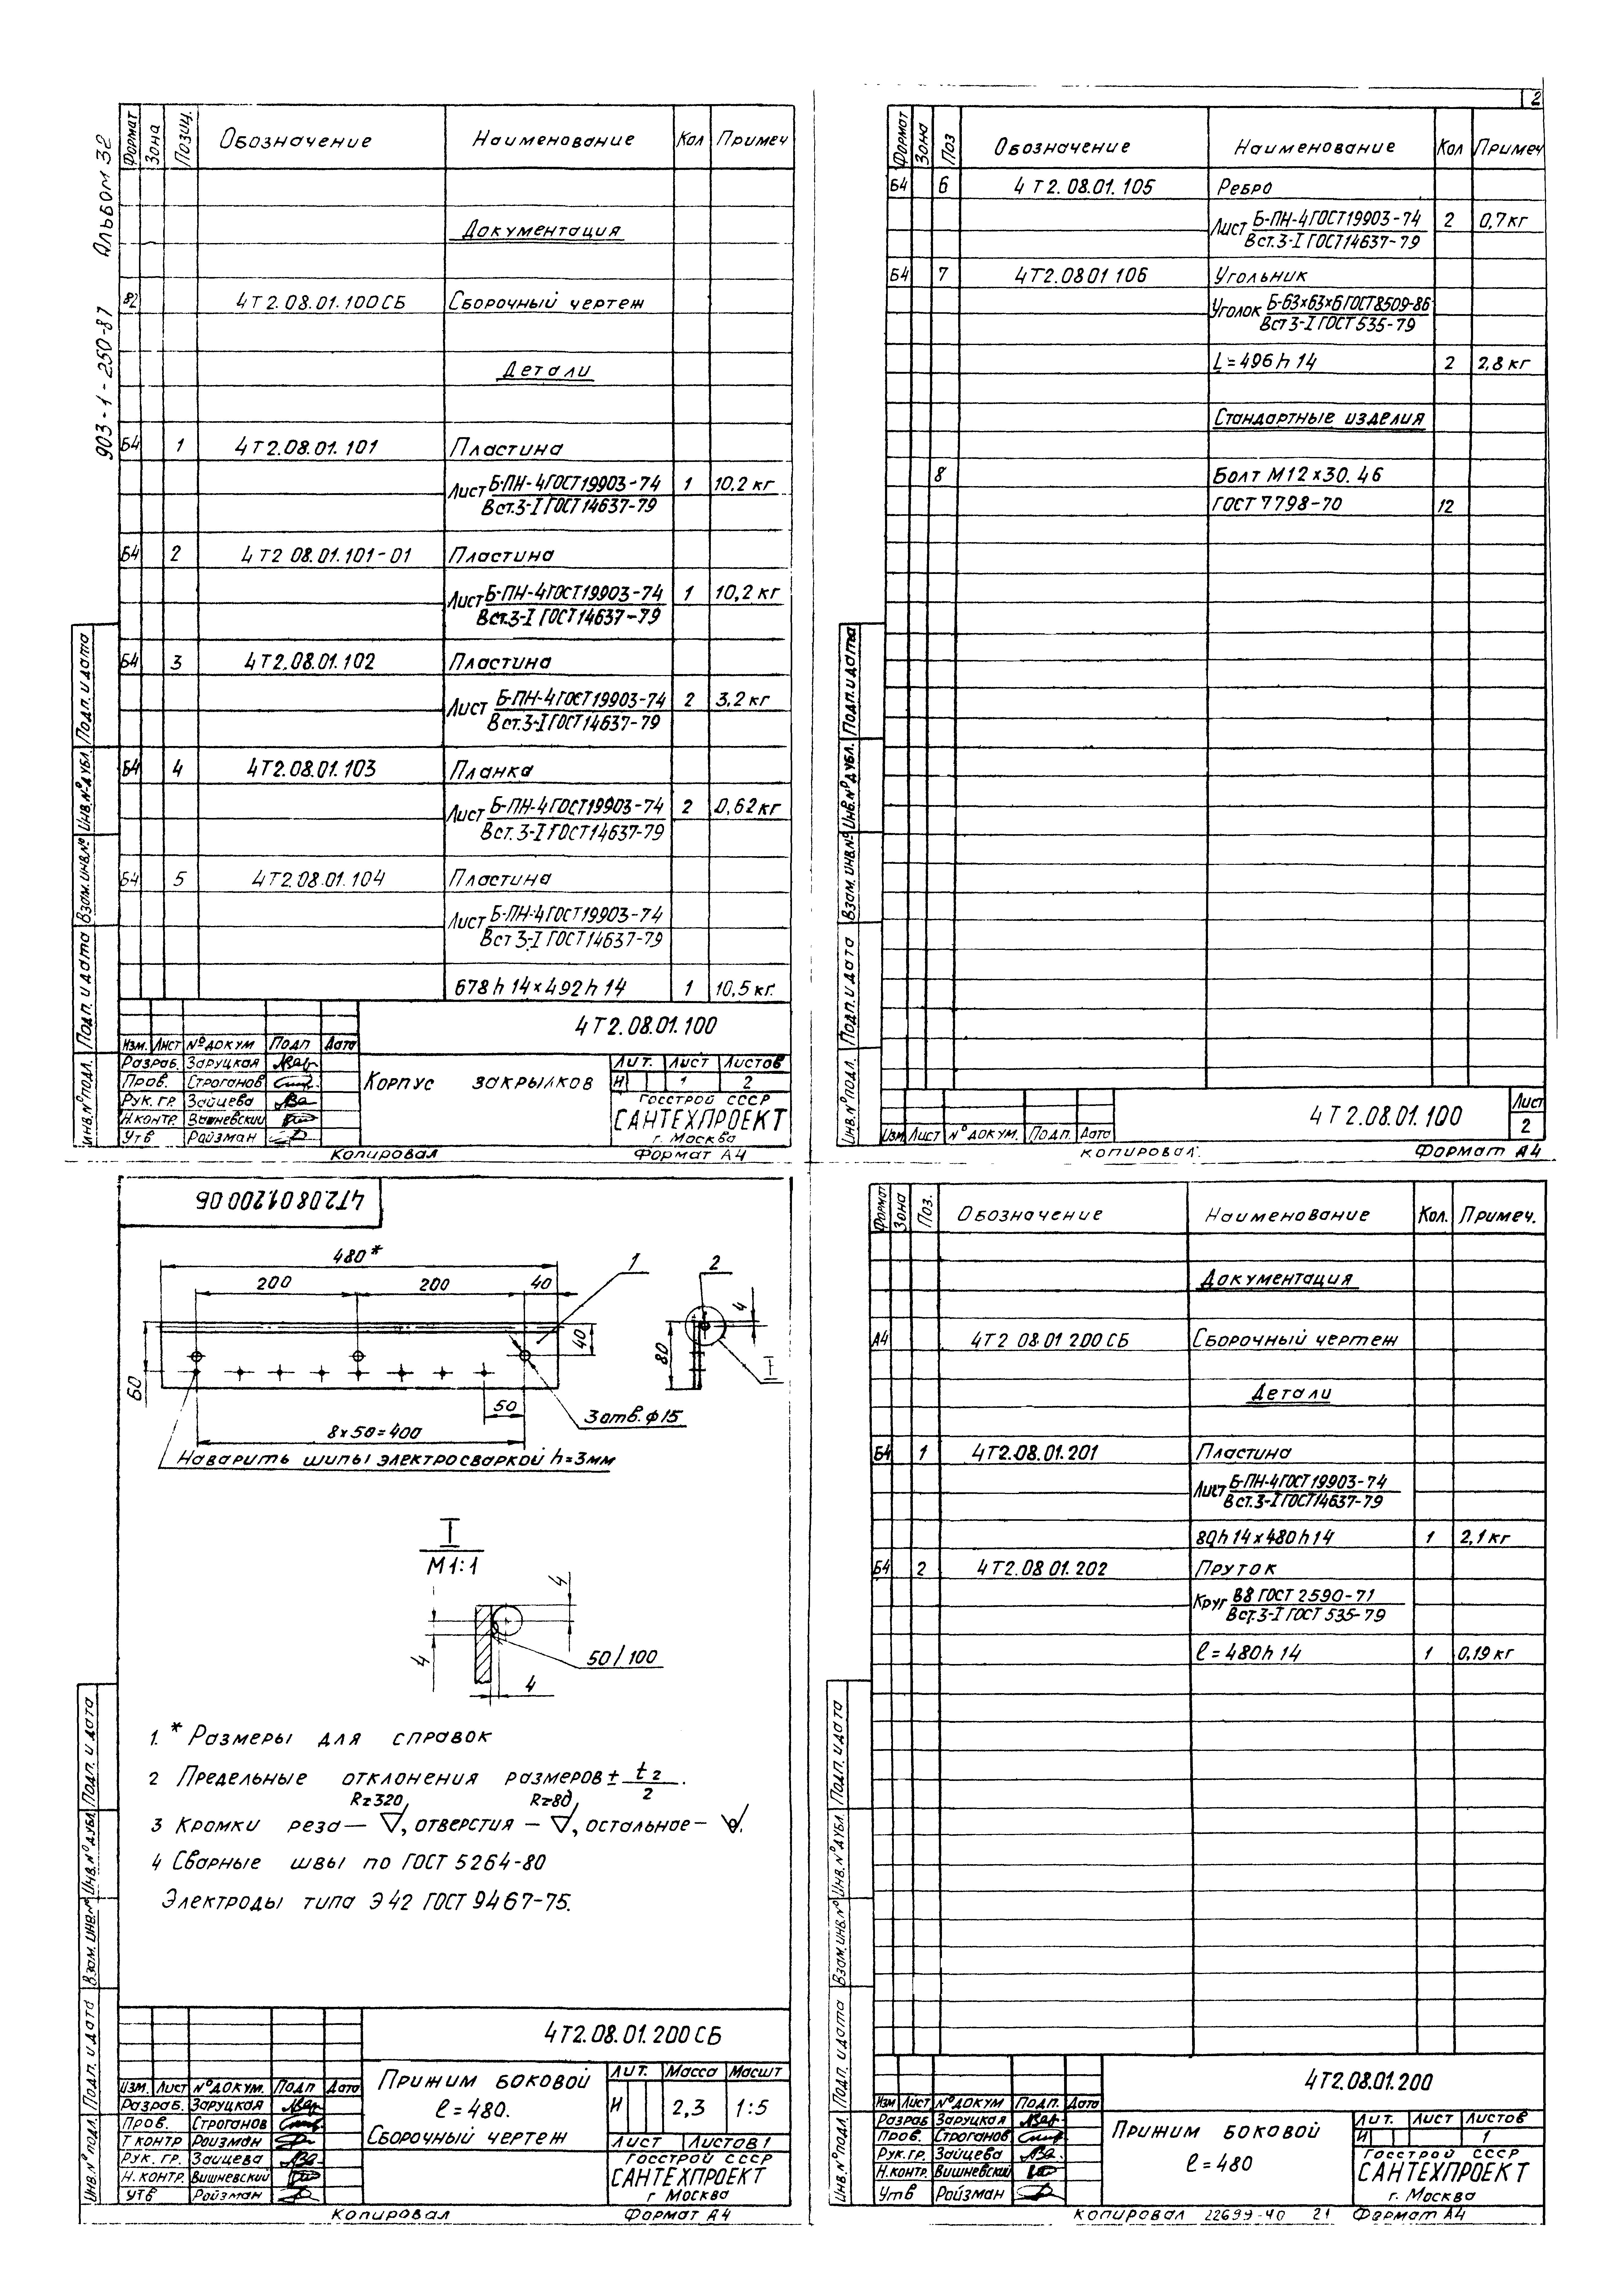 Альбом 32
903-1-250-87
Формат Зона Позиц. Обозначение Наименование Кол Примеч
Документация
4Т2.08.01.100СБ Сборочный чертеж
Детали
Б4 1 4Т2.08.01.101 Пластина
Лист Б-ПН-4ГОСТ19903-74 1 10,2 кг
Вст.3-I ГОСТ14637-79
Б4 2 4Т2 08.01.101-01 Пластина
Лист Б-ПН-4ГОСТ19903-74 1 10,2 кг
Вст.3-I ГОСТ14637-79
Б4 3 4Т2.08.01.102 Пластина
Лист Б-ПН-4ГОСТ19903-74 2 3,2 кг
Вст.3-I ГОСТ14637-79
Б4 4 4Т2.08.01.103 Планка
Лист Б-ПН-4ГОСТ19903-74 2 0,62 кг
Вст.3-I ГОСТ14637-79
Б4 5 4Т2.08.01.104 Пластина
Лист Б-ПН-4ГОСТ19903-74
Вст 3-I ГОСТ14637-79
678h14×492h14 1 10,5 кг.
Инв.№подл. Подп. и дата Взам.инв.№ Инв.№дубл. Подп. и дата
4Т2.08.01.100
Изм. Лист №докум Подп Дата
Разраб. Заруцкая
Пров. Строганов
Рук. гр. Зайцева
Н.контр. Вишневский
Утв Ройзман
Корпус закрылков
Лит. Лист Листов
И 1 2
Госстрой СССР
САНТЕХПРОЕКТ
г. Москва
Копировал Формат А4
2
Формат Зона Поз Обозначение Наименование Кол Примеч
Б4 6 4Т2.08.01.105 Ребро
Лист Б-ПН-4ГОСТ19903-74 2 0,7 кг
Вст.3-I ГОСТ14637-79
Б4 7 4Т2.08.01 106 Угольник
Уголок Б-63×63×6ГОСТ8509-86
Вст3-I ГОСТ 535-79
L=496h14 2 2,8 кг
Стандартные изделия
8 Болт М12×30.46
ГОСТ 7798-70 12
Инв.№подл. Подп. и дата Взам.инв.№ Инв.№дубл. Подп. и дата
Изм Лист №докум. Подп. Дата
4Т2.08.01.100
Лист
2
Копировал. Формат А4
4Т2.08.01.200 СБ
480*
200 200 40
1
2
4
40
60
80
I
50
3отв.ф15
8×50=400
Наварить шипы электросваркой h=3мм
I
М1:1
4
4
50/100
4
1. * Размеры для справок
2 Предельные отклонения размеров ± t2/2.
Rz320 Rz80
3 Кромки реза—, отверстия —, остальное—.
4 Сварные швы по ГОСТ 5264-80
Электроды типа Э42 ГОСТ 9467-75.
Инв.№подл. Подп. и дата Взам.инв.№ Инв.№дубл. Подп. и дата
4Т2.08.01.200СБ
Изм. Лист №докум. Подп Дата
Разраб. Заруцкая
Пров. Строганов
Т контр Ройзман
Рук. гр. Зайцева
Н.контр. Вишневский
Утв Ройзман
Прижим боковой
ℓ=480.
Сборочный чертеж
Лит. Масса Масшт
И 2,3 1:5
Лист Листов1
Госстрой СССР
САНТЕХПРОЕКТ
г Москва
Копировал Формат А4
Формат Зона Поз. Обозначение Наименование Кол. Примеч.
Документация
А4 4Т2 08.01 200 СБ Сборочный чертеж
Детали
Б4 1 4Т2.08.01.201 Пластина
Лист Б-ПН-4ГОСТ19903-74
Вст.3-I ГОСТ14637-79
80h14×480h14 1 2,1 кг
Б4 2 4Т2.08 01.202 Пруток
Круг В8 ГОСТ 2590-71
Вст.3-I ГОСТ 535-79
ℓ=480h14 1 0,19 кг
Инв.№подл. Подп. и дата Взам.инв.№ Инв.№дубл. Подп. и дата
4Т2.08.01.200
Изм Лист №докум Подп. Дата
Разраб Заруцкая
Пров. Строганов
Рук.гр. Зайцева
Н.контр. Вишневский
Утв Ройзман
Прижим боковой
ℓ=480
Лит. Лист Листов
И 1
Госстрой СССР
САНТЕХПРОЕКТ
г. Москва
Копировал 22699-40 21 Формат А4